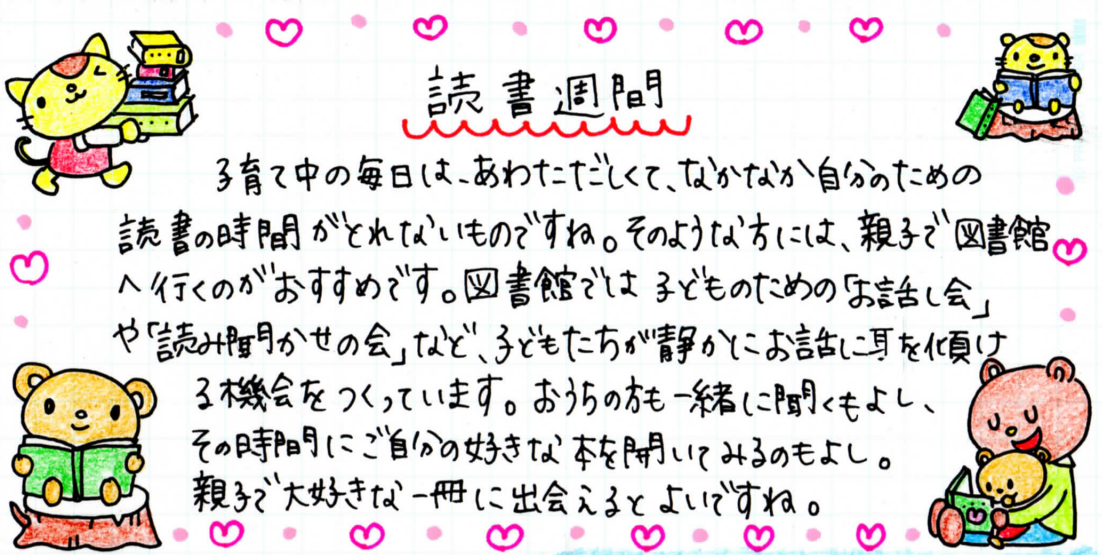 読書週間
子育て中の毎日は、あわただしくて、なかなか自分のための
読書の時間がとれないものですね。そのような方には、親子で図書館
へ行くのがおすすめです。図書館では子どものための「お話し会」
や「読み聞かせの会」など、子どもたちが静かにお話に耳を傾け
る機会をつくっています。おうちの方も一緒に聞くもよし、
その時間にご自分の好きな本を開いてみるのもよし。
親子で大好きな一冊に出会えるとよいですね。